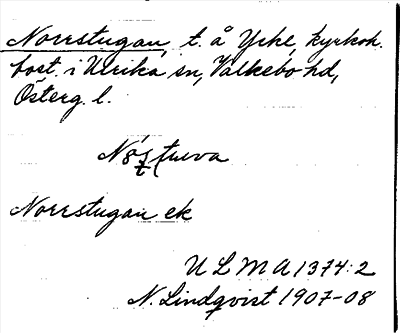 Norrstugan, t. å Yrke, kyrkoh.
bost. i Ulrika sn, Valkebo hd,
Österg. l.
Norrstugan ek
ULMA 1374:2
N. Lindqvist 1907-08